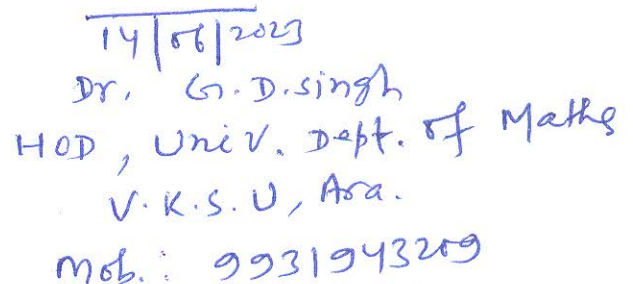 14/06/2023
Dr. G.D.singh
HOD, Univ. Dept. of Maths
V.K.S.U, Ara.
Mob.: 9931943209